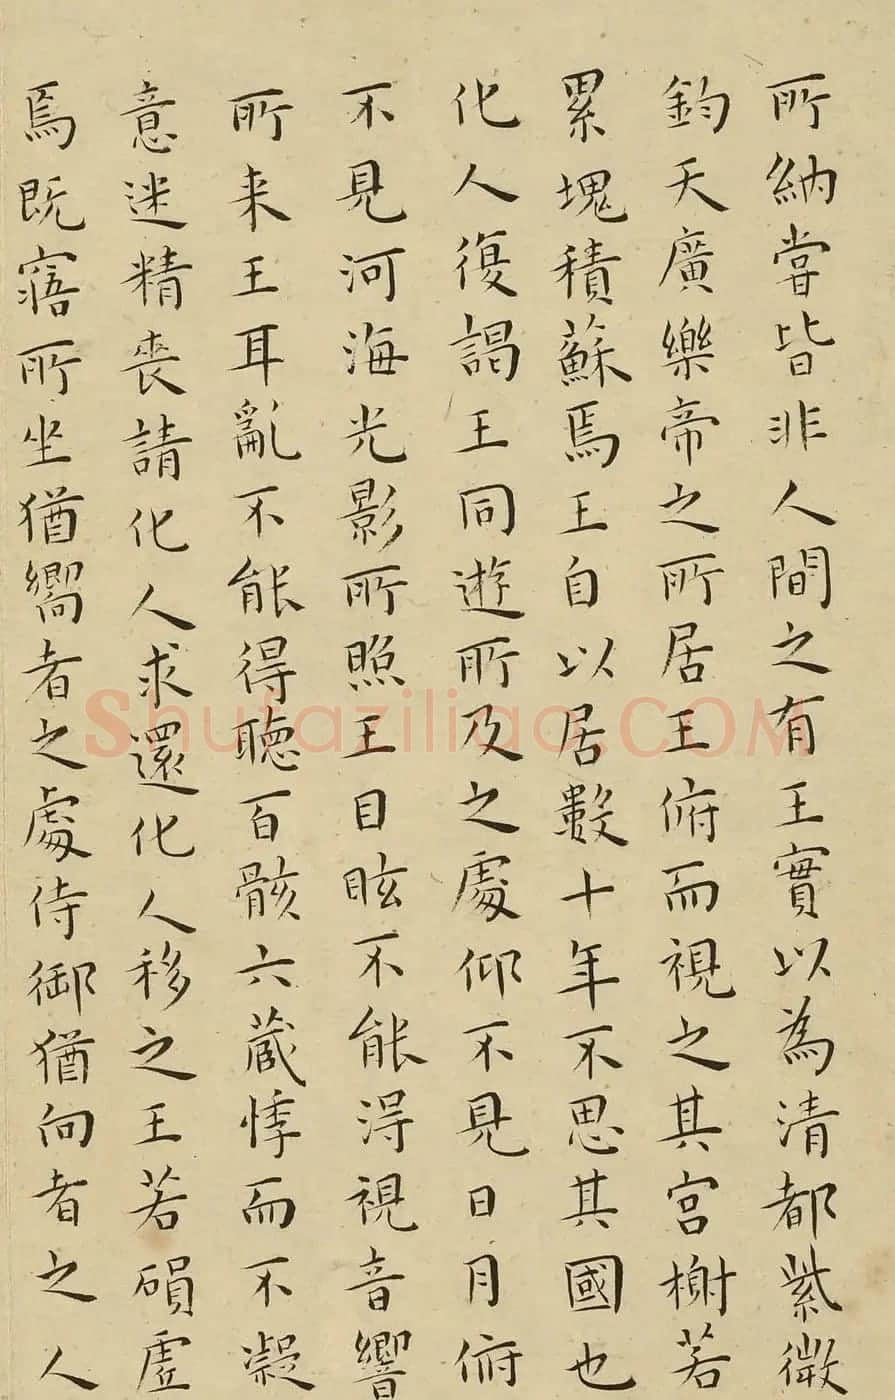 所納嘗皆非人間之有王實以為清都紫微
鈞天廣樂帝之所居王俯而視之其宮榭若
累塊積蘇焉王自以居數十年不思其國也
化人復謁王同遊所及之處仰不見日月俯
不見河海光影所照王目眩不能得視音響
所来王耳亂不能得聽百骸六蔵悸而不凝
意迷精喪請化人求還化人移之王若磒虛
焉既寤所坐猶嚮者之處侍御猶向者之人
Shufaziliao.COM